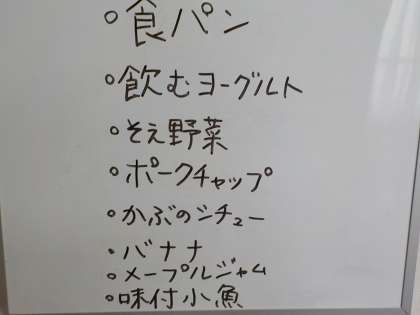 ・食パン
・飲むヨーグルト
・そえ野菜
・ポークチャップ
・かぶのシチュー
・バナナ
・メープルジャム
・味付小魚